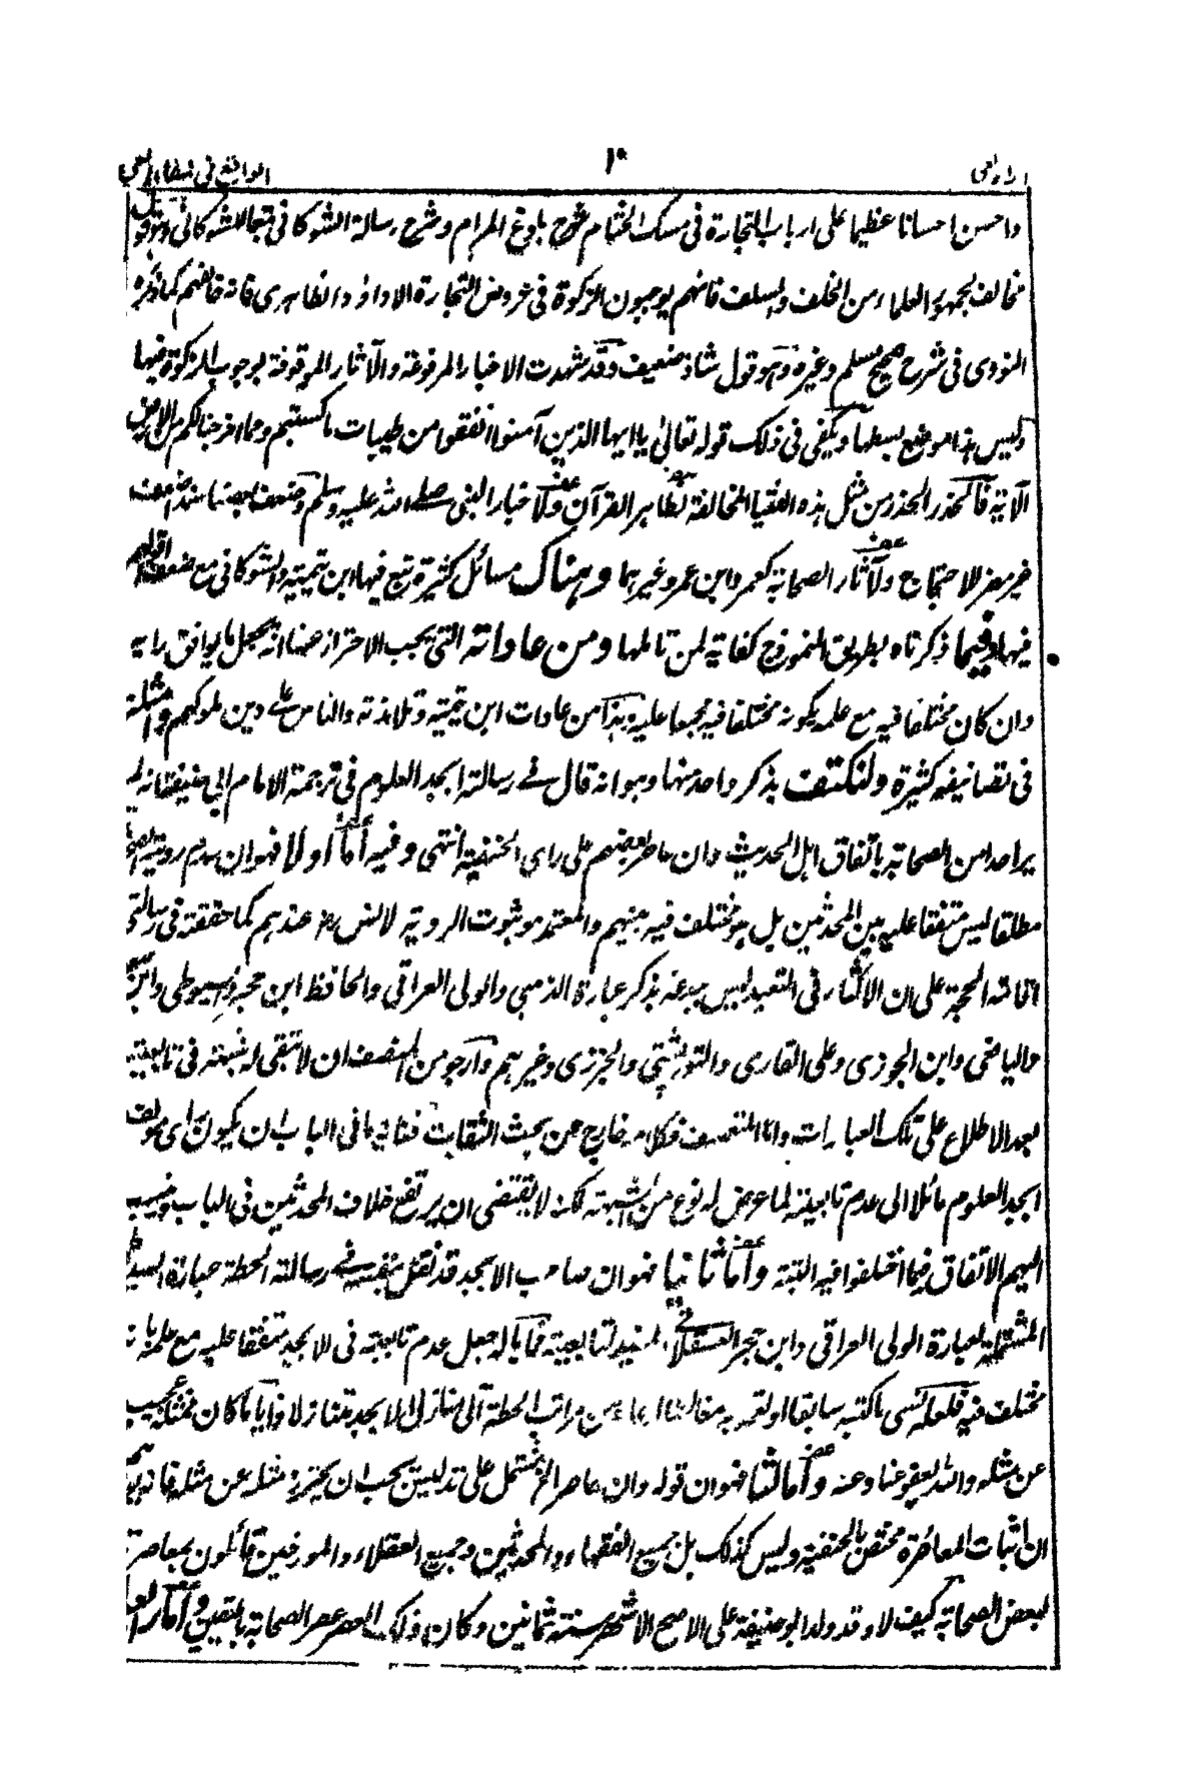 ١٠
واحسن احسانا عظيما على ارباب التجارة فى مسك الختام شرح بلوغ المرام وشرح رسالة الشوكانى تبعا للشوكانى وهو قول
مخالف لجمهور العلماء من الخلف والسلف فانهم يوجبون الزكوة فى عروض التجارة الا داؤد الظاهرى فانه خالفهم كما ذكره
النووى فى شرح صحيح مسلم وغيره وهو قول شاذ ضعيف وقد شهدت الاخبار المرفوعة والآثار الموقوفة لوجوب الزكوة فيها
وليس هذا موضع بسطها ويكفى فى ذلك قوله تعالى يا ايها الذين آمنوا انفقوا من طيبات ما كسبتم ومما اخرجنا لكم من الارض
الآية فالحذر الحذر من مثل هذه الفتيا المخالفة لظاهر القرآن ولاخبار النبى صلى الله عليه وسلم وضعف بعضها سندا ضعف
غير مضر للاحتجاج ولآثار الصحابة كعمر وابن عمر وغيرهما وهناك مسائل كثيرة تبع فيها ابن تيمية والشوكانى مع ضعف اقوالهم
فيها وفيما ذكرناه بطريق النموذج كفاية لمن تاملها ومن عاداته التى يجب الاحتراز عنها انه يجعل ما يوافق رايه
وان كان مختلفا فيه مع علمه بكونه مختلفا فيه مجمعا عليه وهذا من عادات ابن تيمية وتلامذته والناس على دين ملوكهم وامثلته
فى تصانيفه كثيرة ولنكتف بذكر واحد منها وهو انه قال فى رسالته ابجد العلوم فى ترجمة الامام ابى حنيفة انه لم
ير احدا من الصحابة باتفاق اهل الحديث وان عاصر بعضهم على راى الحنفية انتهى وفيه اما اولا فهو ان عدم روية الصحابة
مطلقا ليس متفقا عليه بين المحدثين بل هو مختلف فيه بينهم والمعتمد هو ثبوت الروية لانس رض عندهم كما حققته فى رسالتى
اقامة الحجة على ان الاكثار فى التعبد ليس ببدعة بذكر عبارة الذهبى والولى العراقى والحافظ ابن حجر والسيوطى وابن
واليافعى وابن الجوزى وعلى القارى والتوربشتى والجزرى وغيرهم وارجو من المنصف ان لا تبقى له شبهة فى تابعيته
بعد الاطلاع على تلك العبارات واما المتعسف فكلامه خارج عن بحث الثقات فغاية ما فى الباب ان يكون راى مولف
ابجد العلوم مائلا الى عدم تابعيته لما عرض له نوع من الشبهة لكنه لا يقتضى ان يرتفع خلاف المحدثين فى الباب وينسب
اليهم الاتفاق فيما اختلفوا فيه البتة واما ثانيا فهو ان صاحب الابجد قد نقل بنفسه فى رسالته الحطة عبارة السيوطى
المشتملة لعبارة الولى العراقى وابن حجر العسقلانى المفيد لتابعيته فما باله جعل عدم تابعيته فى الابجد متفقا عليه مع علمه بانه
مختلف فيه فلعله نسى ما كتبه سابقا او تعمد به مغالطة من مراتب الحطة الى منازل الابجد متنازلا وايا ما كان فمثله عجيب
عن مثله والله يعفو عنا وعنه واما ثالثا فهو ان قوله وان عاصر الخ مشتمل على تدليس يجب ان يحترز مثله عن مثله فانه يوهم
ان اثبات المعاصرة مختص بالحنفية وليس كذلك بل جميع الفقهاء والمحدثين وجميع العقلاء والمورخين قائلون بمعاصرته
لبعض الصحابة كيف لا وقد ولد ابو حنيفة على الاصح الاشهر سنة ثمانين وكان ذلك العصر عصر الصحابة باليقين واما